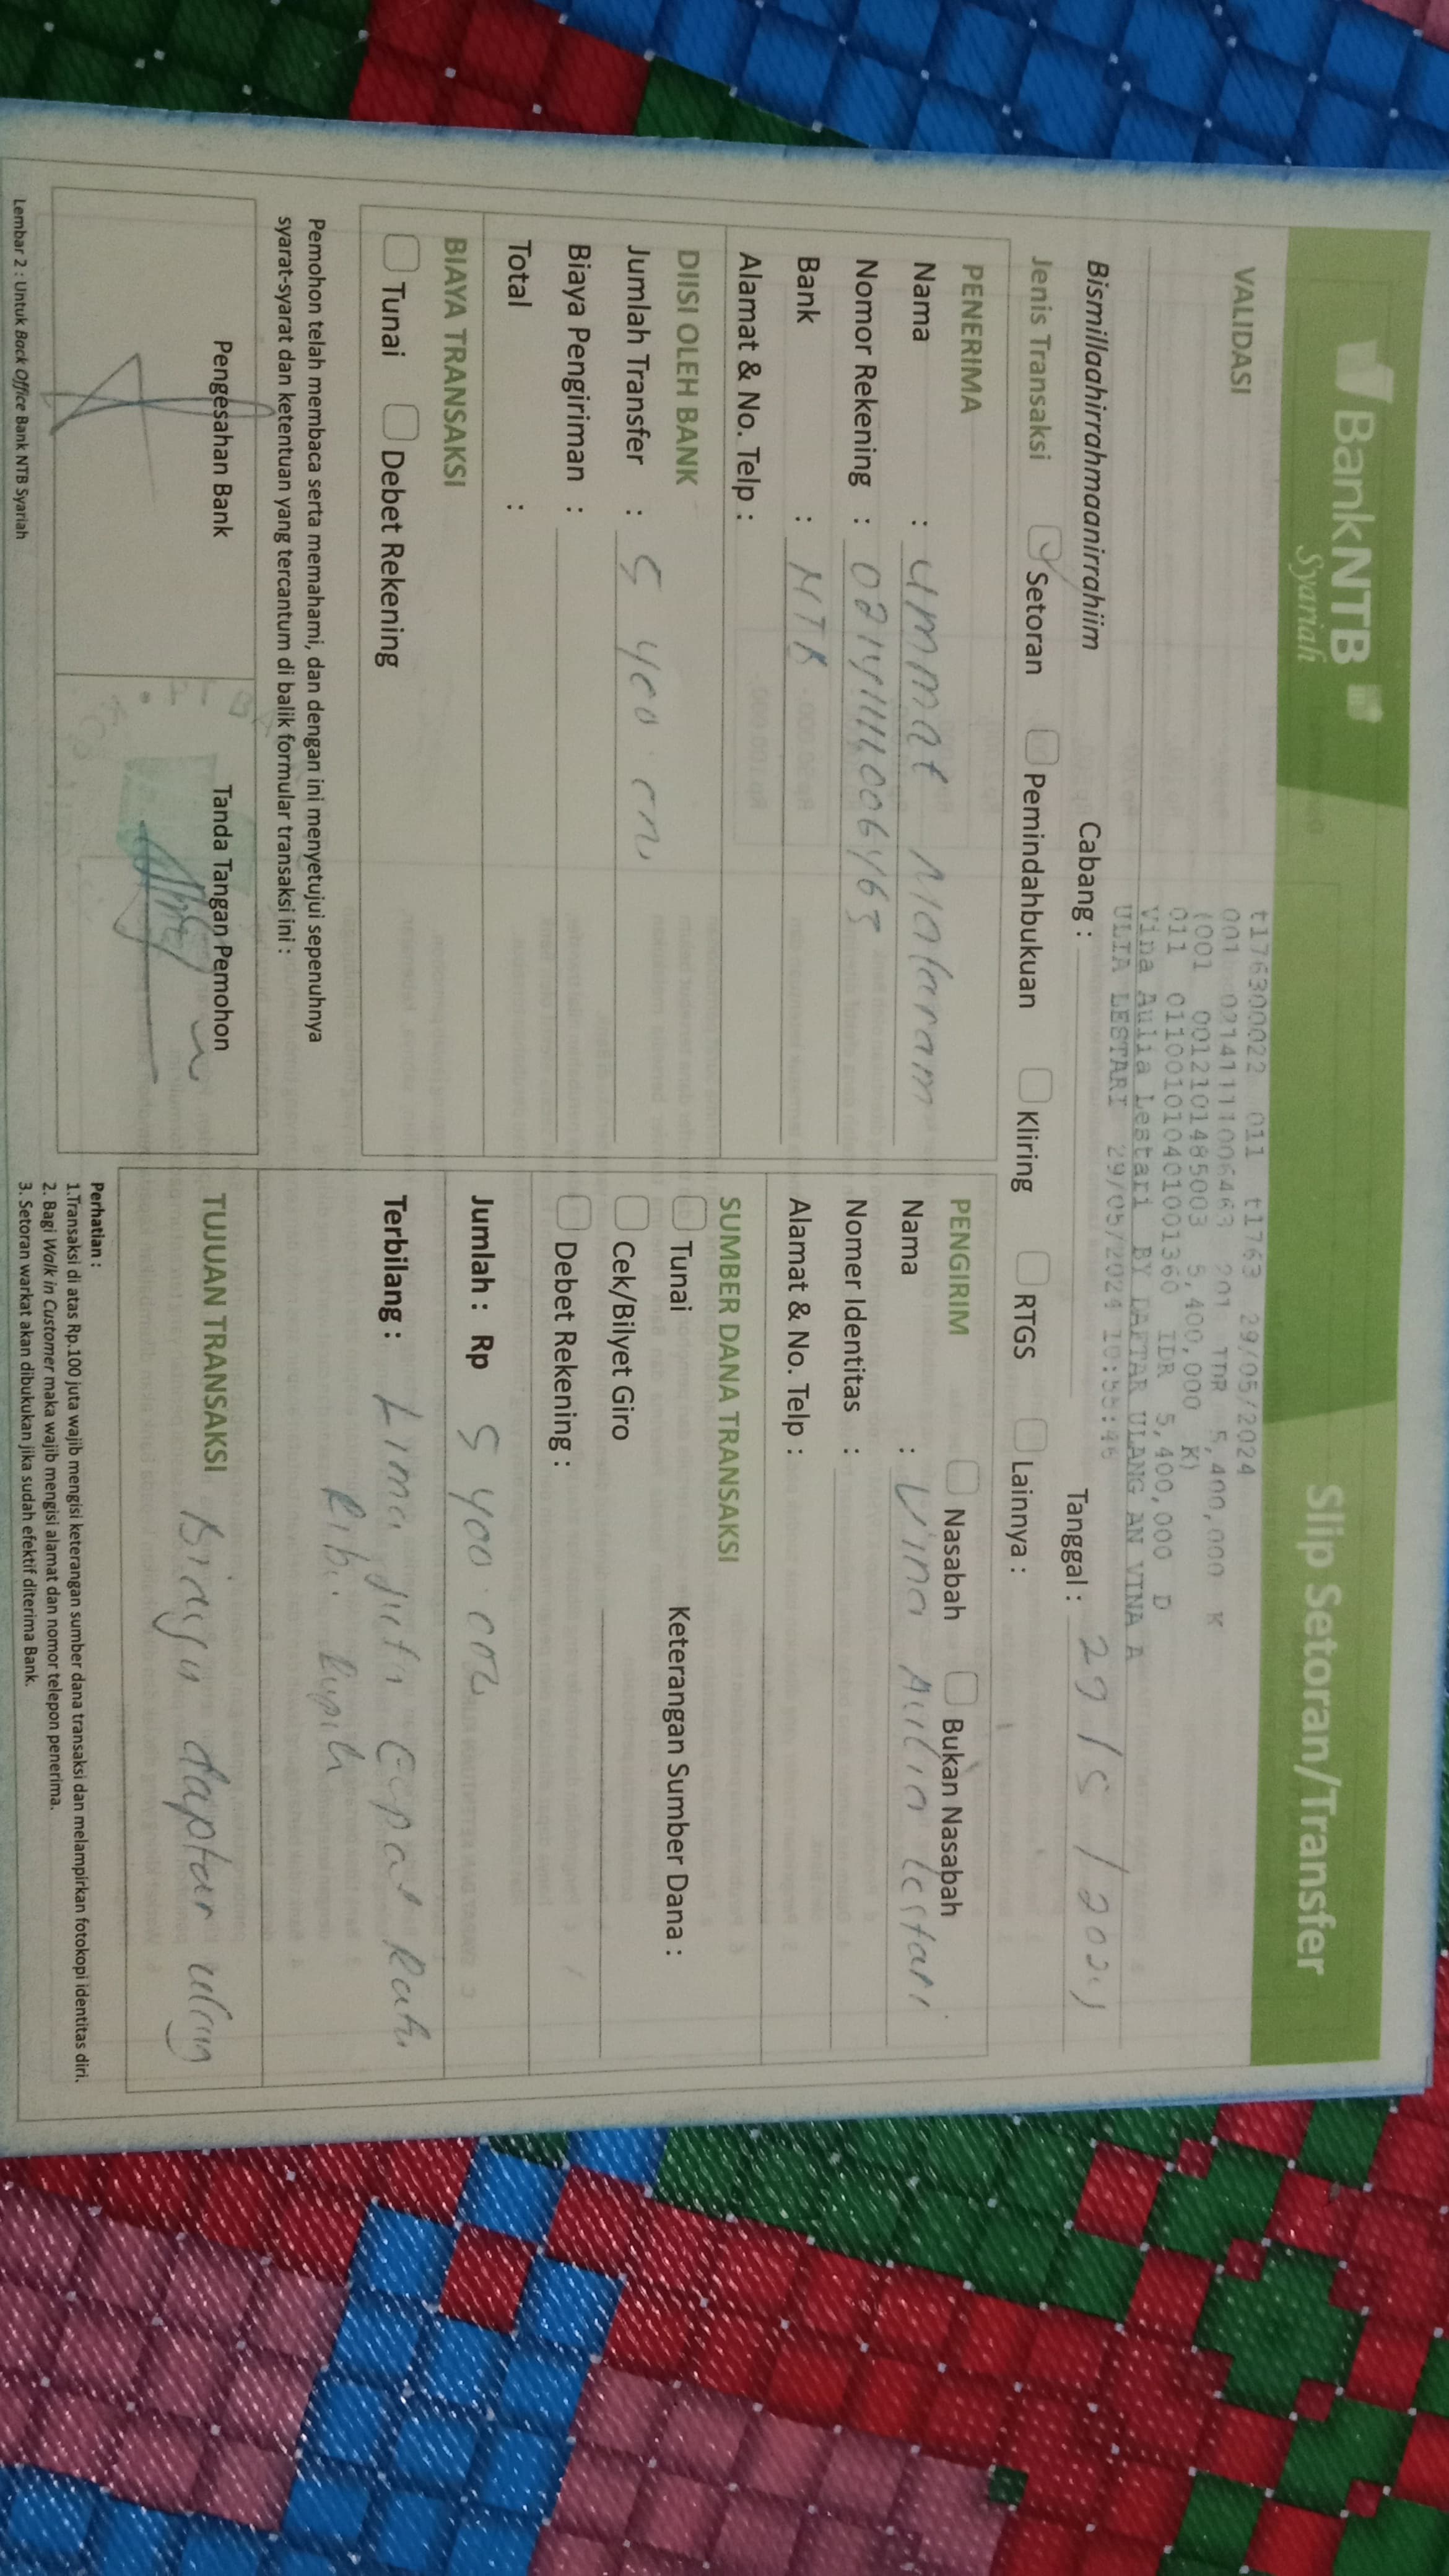 BankNTB
Syariah
Slip Setoran/Transfer
VALIDASI
t176300022 011 t1763 29/05/2024
001 02141111006463 201 IDR 5,400,000 K
(001 0012101485003 5,400,000 K)
011 011001010401001360 IDR 5,400,000 D
Vina Aulia Lestari BY DAFTAR ULANG AN VINA A
ULIA LESTARI 29/05/2024 10:55:46
Bismillaahirrahmaanirrahiim
Cabang :
Tanggal : 29/5/2024
Jenis Transaksi
Setoran
Pemindahbukuan
Kliring
RTGS
Lainnya :
PENERIMA
Nama : ummat Mataram
Nomor Rekening : 02141111006463
Bank : NTB
Alamat & No. Telp :
PENGIRIM
Nasabah
Bukan Nasabah
Nama : Vina Aulia Lestari
Nomer Identitas :
Alamat & No. Telp :
DIISI OLEH BANK
Jumlah Transfer : 5 400.000
Biaya Pengiriman :
Total :
SUMBER DANA TRANSAKSI
Tunai
Keterangan Sumber Dana :
Cek/Bilyet Giro
Debet Rekening :
BIAYA TRANSAKSI
Tunai
Debet Rekening
Jumlah : Rp 5 400.000
Terbilang : Lima juta Empat Ratus
Ribu Rupiah
Pemohon telah membaca serta memahami, dan dengan ini menyetujui sepenuhnya
syarat-syarat dan ketentuan yang tercantum di balik formular transaksi ini :
Pengesahan Bank
Tanda Tangan Pemohon
TUJUAN TRANSAKSI Biaya daptar ulang
Perhatian :
1.Transaksi di atas Rp.100 juta wajib mengisi keterangan sumber dana transaksi dan melampirkan fotokopi identitas diri.
2. Bagi Walk in Customer maka wajib mengisi alamat dan nomor telepon penerima.
3. Setoran warkat akan dibukukan jika sudah efektif diterima Bank.
Lembar 2 : Untuk Back Office Bank NTB Syariah